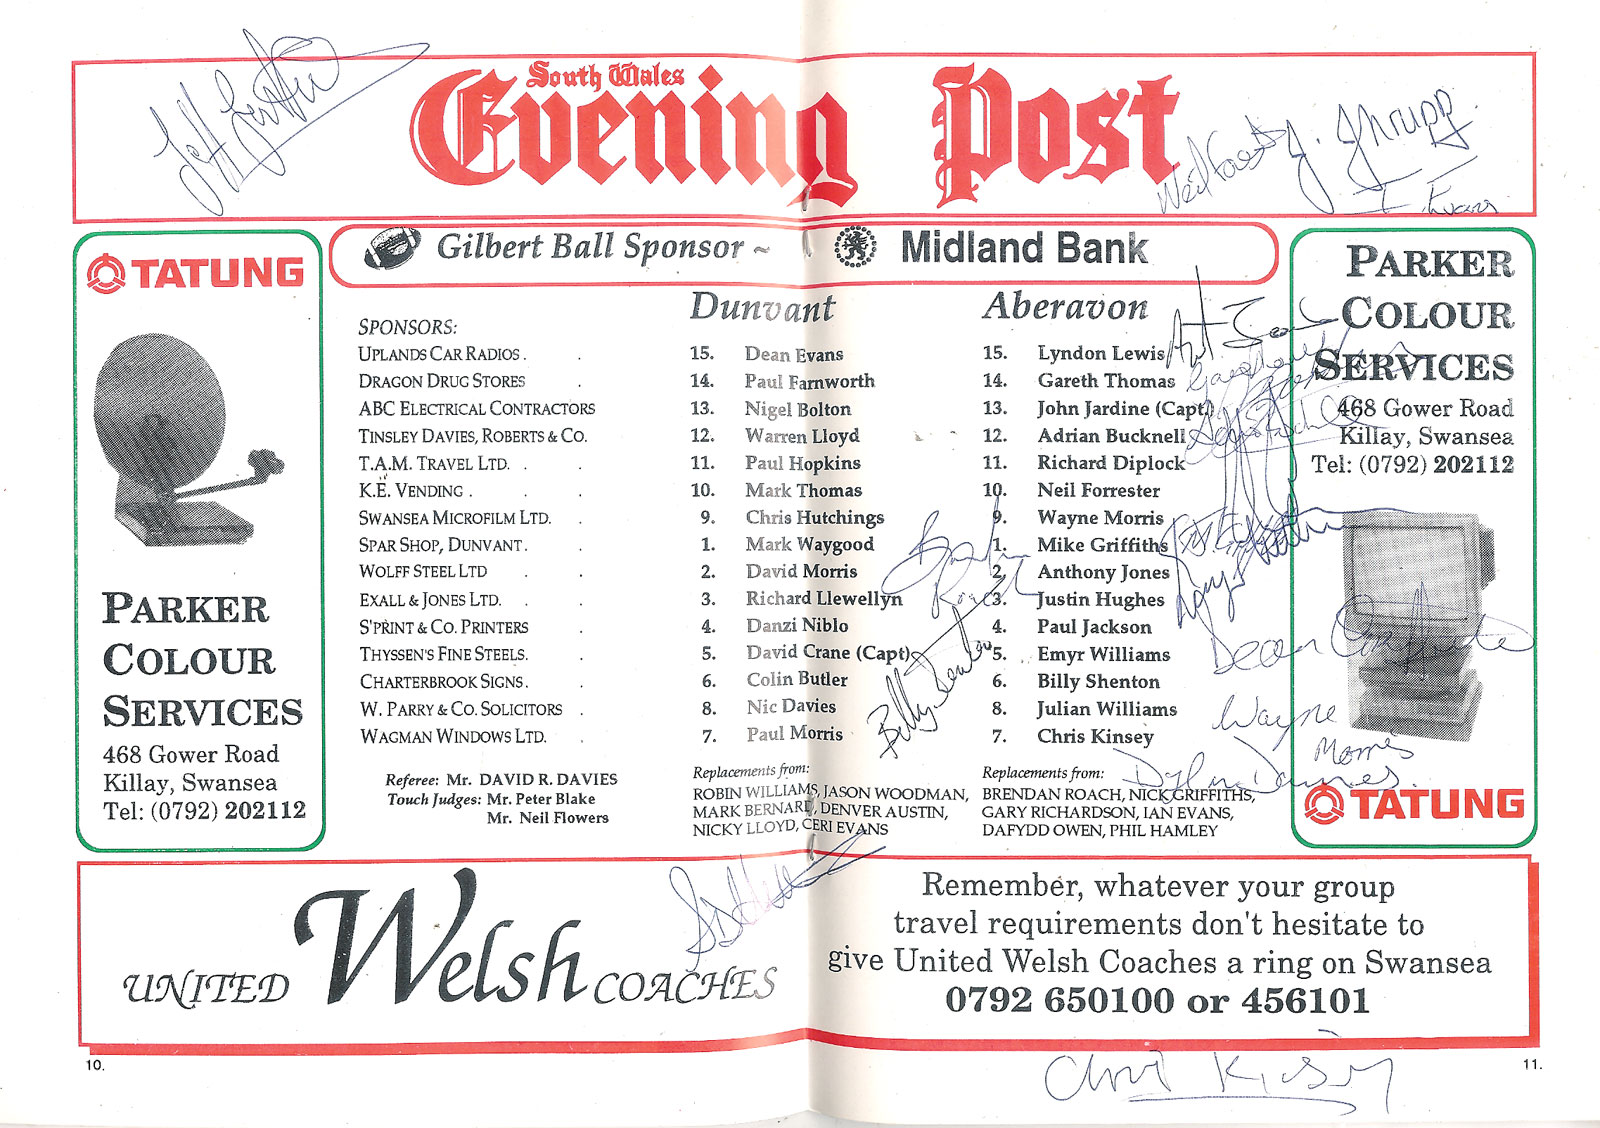 South Wales
Evening Post
Neil Forrest
J. Thrupp
I. Evans
TATUNG
PARKER
COLOUR
SERVICES
468 Gower Road
Killay, Swansea
Tel: (0792) 202112
Gilbert Ball Sponsor ~ Midland Bank
SPONSORS:
UPLANDS CAR RADIOS . .
DRAGON DRUG STORES .
ABC ELECTRICAL CONTRACTORS
TINSLEY DAVIES, ROBERTS & CO.
T.A.M. TRAVEL LTD. . .
K.E. VENDING . . .
SWANSEA MICROFILM LTD. .
SPAR SHOP, DUNVANT. .
WOLFF STEEL LTD . .
EXALL & JONES LTD. . .
S'PRINT & CO. PRINTERS .
THYSSEN'S FINE STEELS. .
CHARTERBROOK SIGNS. .
W. PARRY & CO. SOLICITORS .
WAGMAN WINDOWS LTD. .
Referee: Mr. DAVID R. DAVIES
Touch Judges: Mr. Peter Blake
Mr. Neil Flowers
Dunvant
15. Dean Evans
14. Paul Farnworth
13. Nigel Bolton
12. Warren Lloyd
11. Paul Hopkins
10. Mark Thomas
9. Chris Hutchings
1. Mark Waygood
2. David Morris
3. Richard Llewellyn
4. Danzi Niblo
5. David Crane (Capt)
6. Colin Butler
8. Nic Davies
7. Paul Morris
Replacements from:
ROBIN WILLIAMS, JASON WOODMAN,
MARK BERNARD, DENVER AUSTIN,
NICKY LLOYD, CERI EVANS
Aberavon
15. Lyndon Lewis
14. Gareth Thomas
13. John Jardine (Capt)
12. Adrian Bucknell
11. Richard Diplock
10. Neil Forrester
9. Wayne Morris
1. Mike Griffiths
2. Anthony Jones
3. Justin Hughes
4. Paul Jackson
5. Emyr Williams
6. Billy Shenton
8. Julian Williams
7. Chris Kinsey
Replacements from:
BRENDAN ROACH, NICK GRIFFITHS,
GARY RICHARDSON, IAN EVANS,
DAFYDD OWEN, PHIL HAMLEY
Billy Shenton
Dean
Wayne
Morris
PARKER
COLOUR
SERVICES
468 Gower Road
Killay, Swansea
Tel: (0792) 202112
TATUNG
UNITED Welsh COACHES
Remember, whatever your group
travel requirements don't hesitate to
give United Welsh Coaches a ring on Swansea
0792 650100 or 456101
10.
11.
Chris Kinsey